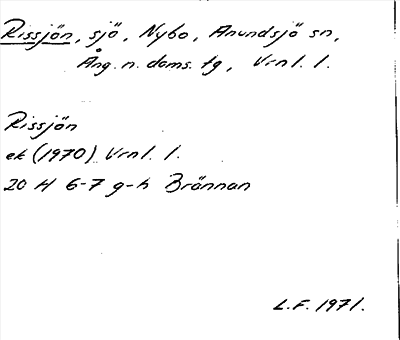 Rissjön, sjö, Nybo, Anundsjö sn,
Ång. n. doms. tg, Vrnl. l.
Rissjön
ek (1970) Vrnl. l.
20 H 6-7 g-h Brännan
L.F. 1971.